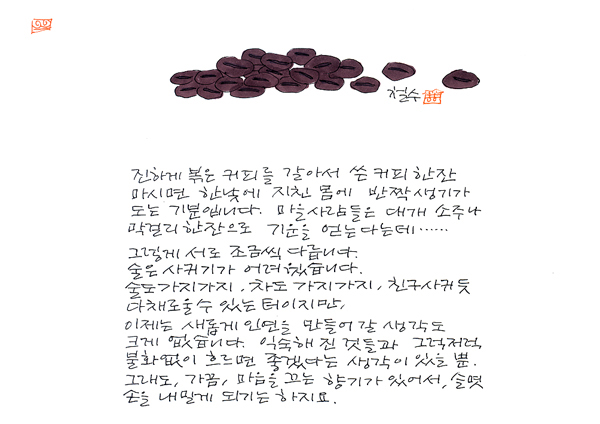 철수
진하게 볶은 커피를 갈아서 쓴 커피 한잔
마시면 한낮에 지친 몸에 반짝 생기가
도는 기분입니다. 마을사람들은 대개 소주나
막걸리 한잔으로 기운을 얻는다는데……
그렇게 서로 조금씩 다릅니다.
술은 사귀기가 어려웠습니다.
술도 가지가지, 차도 가지가지, 친구사귀듯
다채로울 수 있는 터이지만,
이제는 새롭게 인연을 만들어 갈 생각도
크게 없습니다. 익숙해진 것들과 그럭저럭
불화없이 흐르면 좋겠다는 생각이 있을 뿐.
그래도, 가끔, 마음을 끄는 향기가 있어서, 슬몃
손을 내밀게 되기는 하지요.